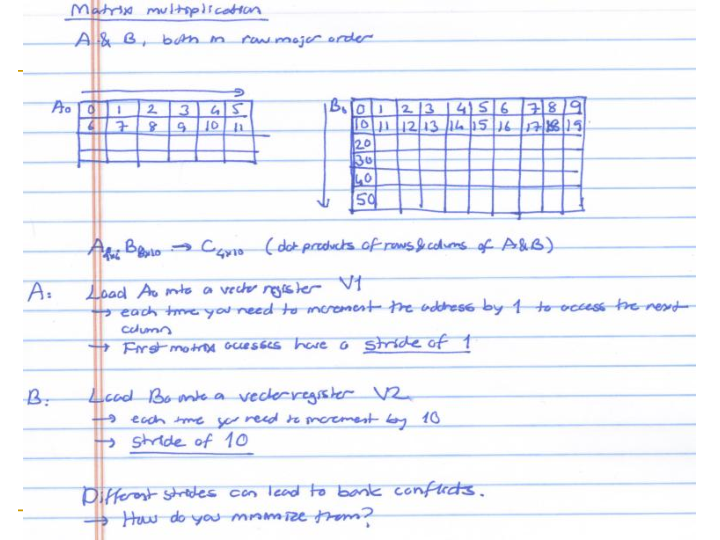 Matrix multiplication
A & B, both in row major order
A0 0 1 2 3 4 5
6 7 8 9 10 11
B0 0 1 2 3 4 5 6 7 8 9
10 11 12 13 14 15 16 17 18 19
20
30
40
50
A4x6 B6x10 → C4x10 (dot products of rows & columns of A & B)
A: Load A0 into a vector register V1
→ each time you need to increment the address by 1 to access the next
column
→ First matrix accesses have a stride of 1
B: Load B0 into a vector register V2
→ each time you need to increment by 10
→ stride of 10
Different strides can lead to bank conflicts.
→ How do you minimize them?